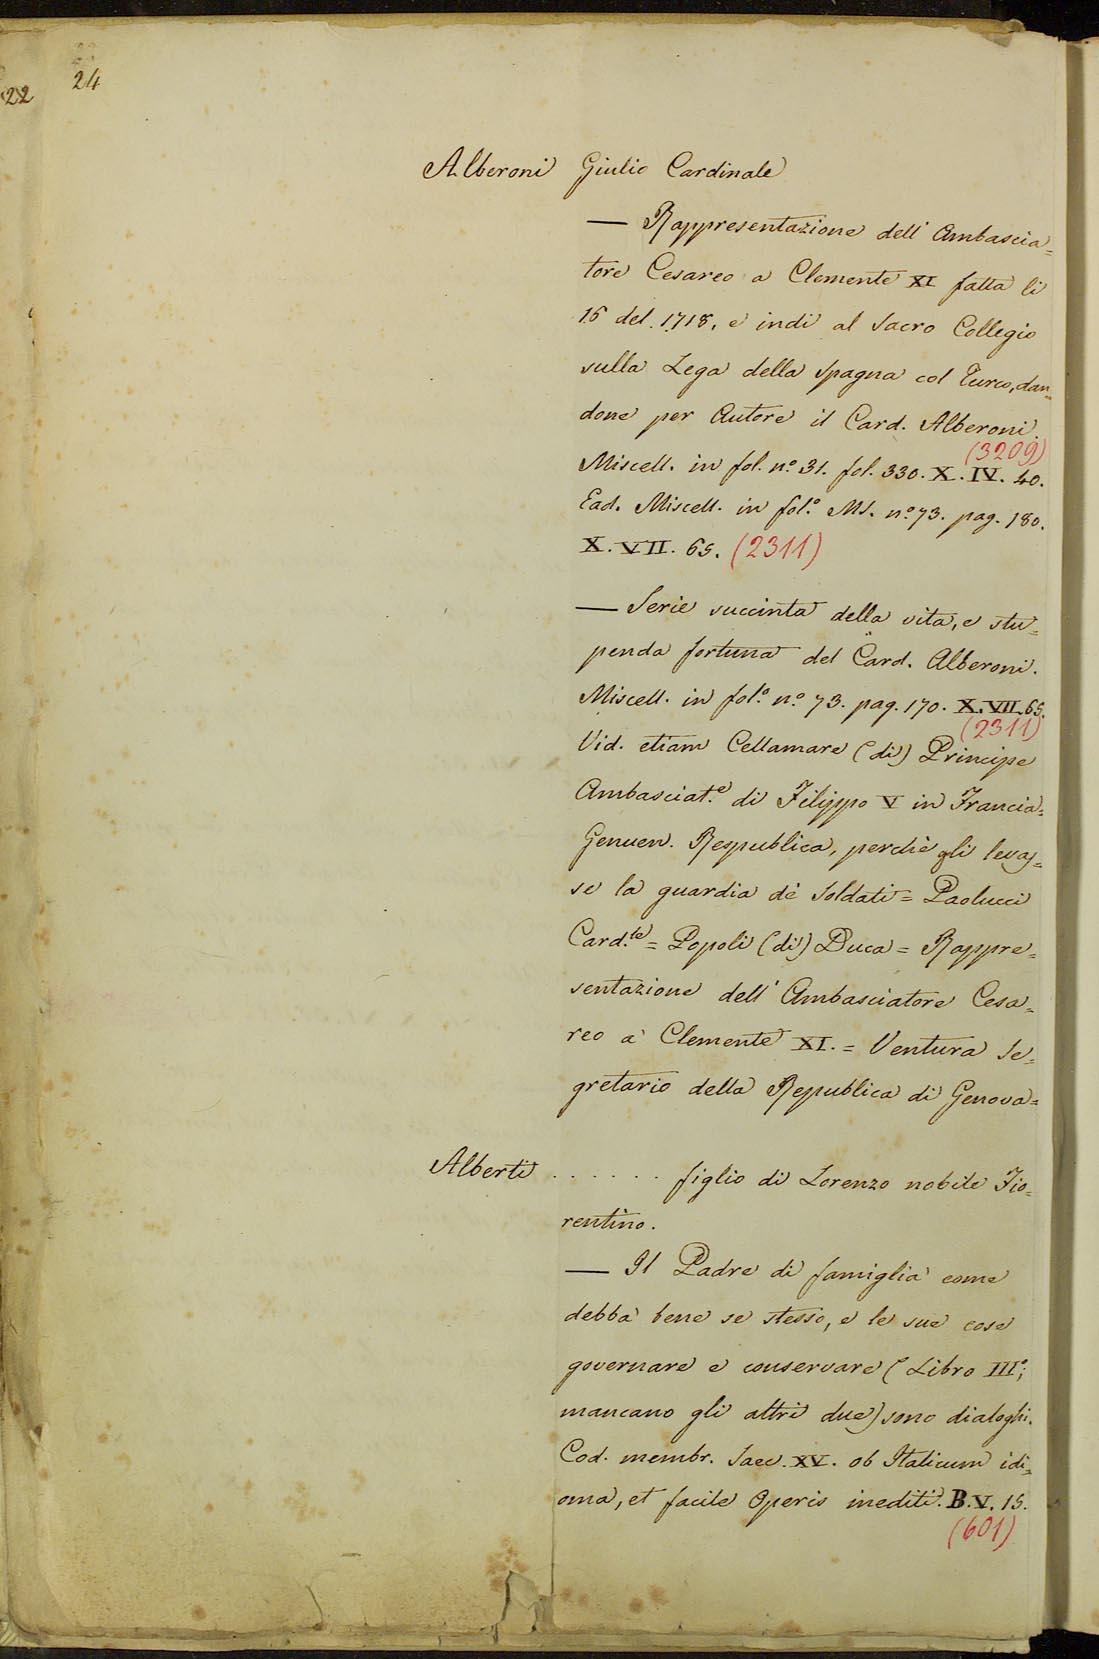 24
22
Alberoni Giulio Cardinale
— Rappresentazione dell' Ambascia=
tore Cesareo a Clemente XI fatta li
16 del 1718, e indi al Sacro Collegio
sulla Lega della Spagna col Turco, dan=
done per Autore il Card. Alberoni.
(3209)
Miscell. in fol. n.º 31. fol. 330. X. IV. 40.
Ead. Miscell. in fol.º MS. n.º 73. pag. 180.
X. VII. 65. (2311)
— Serie succinta della vita, e stu=
penda fortuna del Card. Alberoni.
Miscell. in fol.º n.º 73. pag. 170. X. VII. 65.
(2311)
Vid. etiam Cellamare (di) Principe
Ambasciat.e di Filippo V in Francia=
Genuen. Respublica, perchè gli levas=
se la guardia de' Soldati = Paolucci
Card.le = Popoli (di) Duca = Rappre=
sentazione dell' Ambasciatore Cesa=
reo a Clemente XI. = Ventura Se=
gretario della Republica di Genova=
Alberti . . . . . . figlio di Lorenzo nobile Fio=
rentino.
— Il Padre di famiglia come
debba bene se stesso, e le sue cose
governare e conservare (Libro IIIº;
mancano gli altri due) sono dialoghi.
Cod. membr. Saec. XV. ob Italicum idi=
oma, et facile Operis inediti. B. V. 15.
(601)